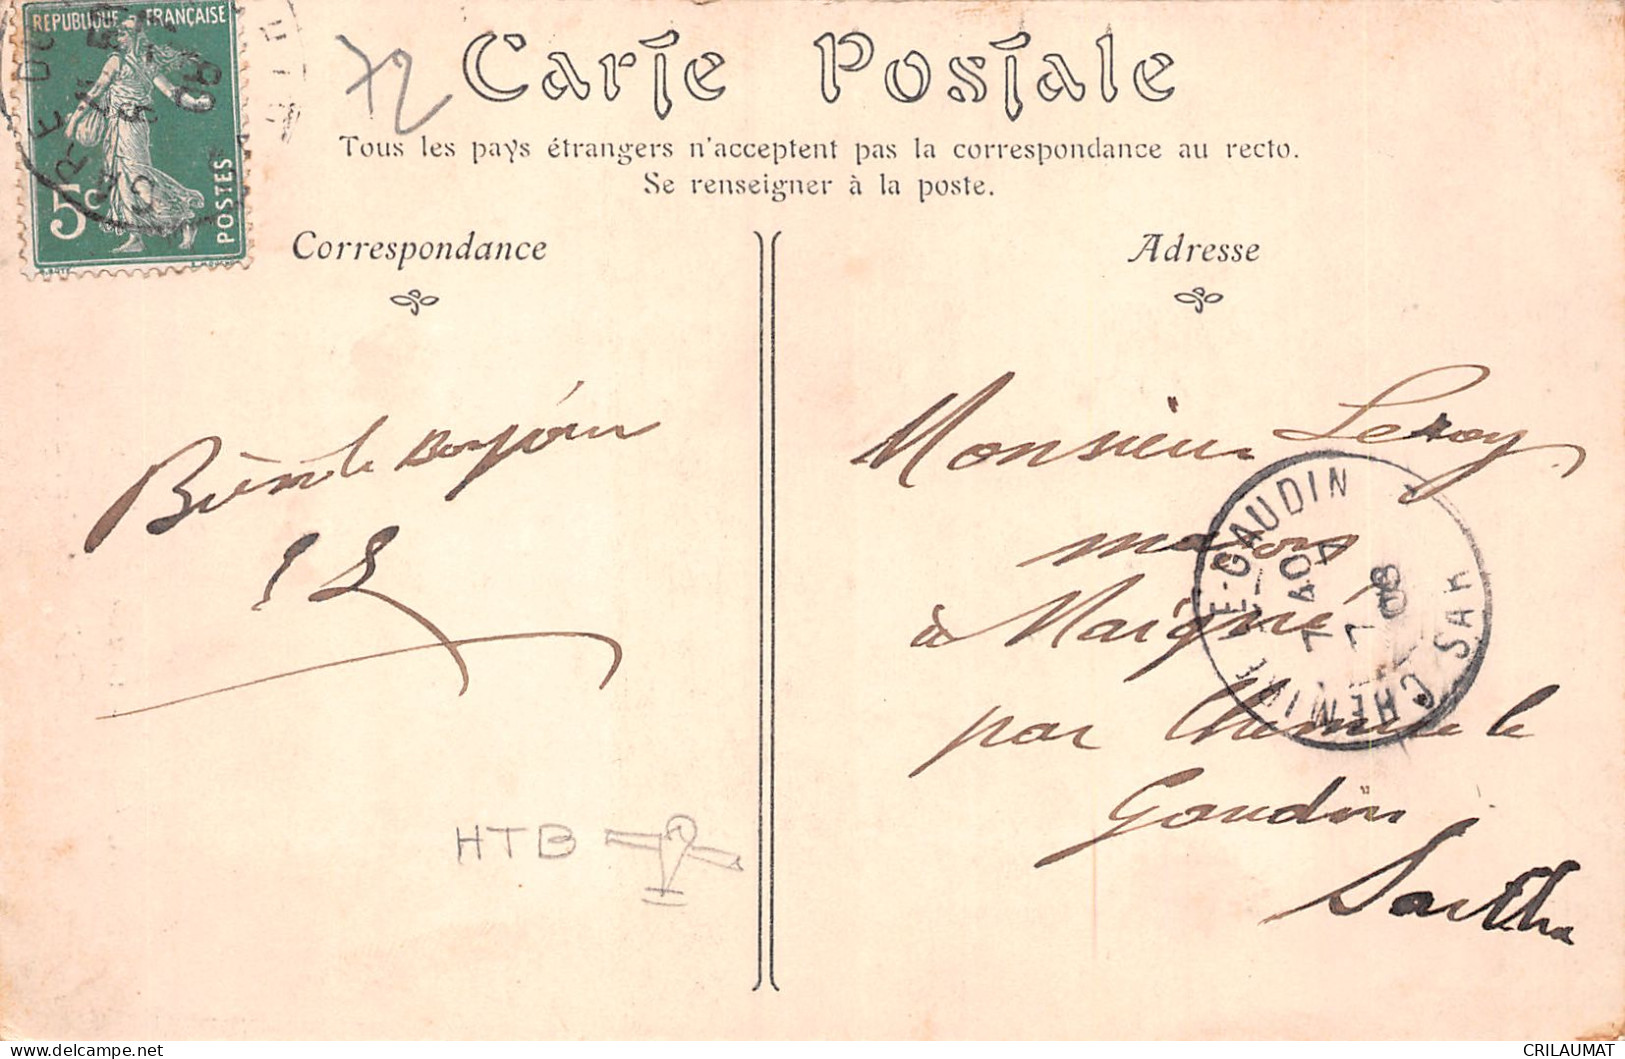 RÉPUBLIQUE FRANÇAISE
5c
POSTES
72
Carte Postale
Tous les pays étrangers n'acceptent pas la correspondance au recto.
Se renseigner à la poste.
Correspondance
Adresse
Bien le bonjour
Monsieur Leroy
maçon
à Maigné
par Chemiré le
Gaudin
Sarthe
CHEMIRÉ-LE-GAUDIN
7 40
7 7
08
SAR
HTB
CRILAUMAT